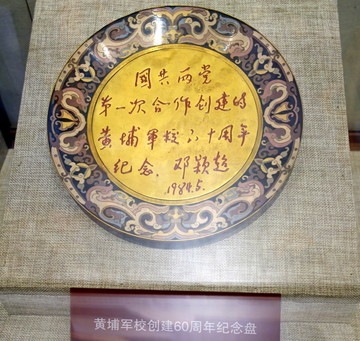 國共两党
第一次合作创建的
黄埔軍校六十周年
纪念.邓颖超
1984.5.
黄埔军校创建60周年纪念盘